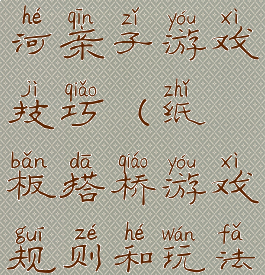 hé qīn zǐ yóu xì
河亲子游戏
jì qiǎo zhǐ
技巧（纸
bǎn dā qiáo yóu xì
板搭桥游戏
guī zé hé wán fǎ
规则和玩法